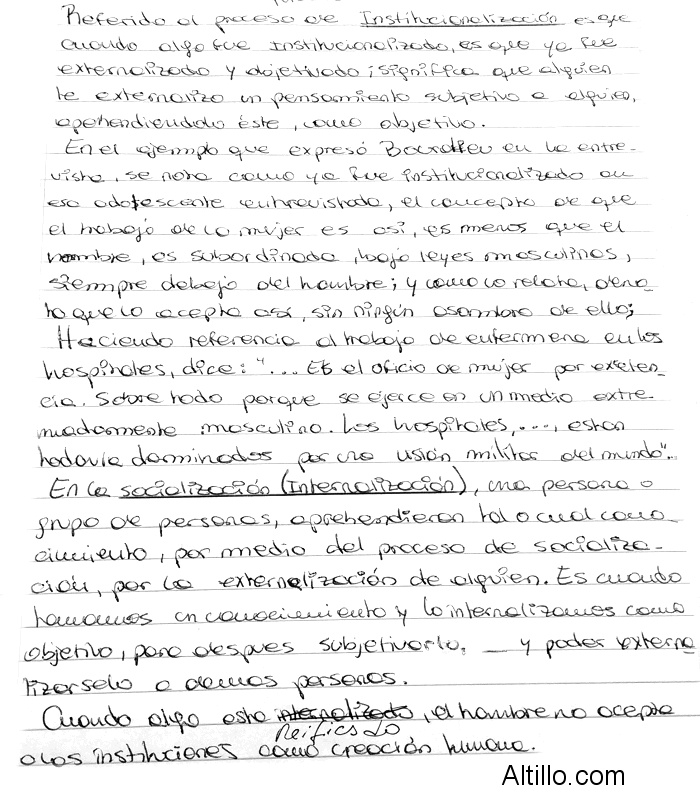 Referido al proceso de Institucionalización es que
cuando algo fue institucionalizado, es que ya fue
externalizado y objetivado; significa que alguien
le externalizo un pensamiento subjetivo a alguien,
aprehendiendolo éste, como objetivo.
En el ejemplo que expresó Bourdieu en la entre-
vista, se nota como ya fue institucionalizado en
esa adolescente entrevistada, el concepto de que
el trabajo de la mujer es así, es menos que el
hombre, es subordinada, bajo leyes masculinas,
siempre debajo del hombre; y como lo relata, deno
ta que lo acepta así, sin ningún asombro de ello;
Haciendo referencia al trabajo de enfermera en los
hospitales, dice: "... Es el oficio de mujer por exelen_
cia. Sobre todo porque se ejerce en un medio extre-
madamente masculino. Los hospitales, ..., estan
todavía dominados por una visión militar del mundo"..
En la socialización (Internalización), una persona o
grupo de personas, aprehendieron tal o cual cono_
cimiento, por medio del proceso de socializa-
ción, por la externalización de alguien. Es cuando
tomamos un conocimiento y lo internalizamos como
objetivo, para despues subjetivarlo, _ y poder externa
lizarselo a demas personas.
Cuando algo esta internalizado, el hombre no acepta
Reificado
a las instituciones como creación humana.
Altillo.com